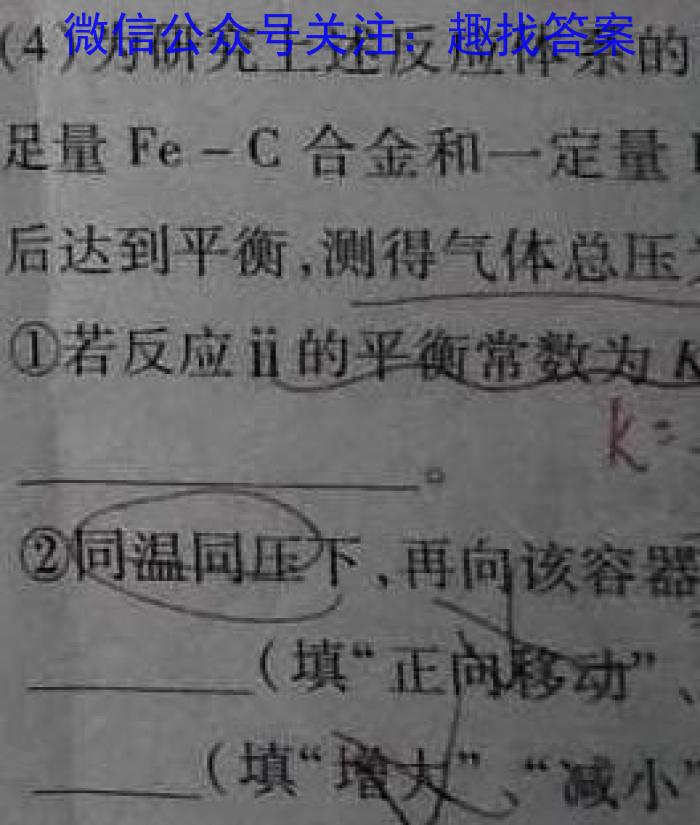 微信公众号关注：趣找答案
(4)为研究上述反应体系的
足量 Fe－C 合金和一定量
后达到平衡,测得气体总压
①若反应ⅱ的平衡常数为 K
k=
。
②同温同压下,再向该容器
(填“正向移动”、
(填“增大”、“减小”